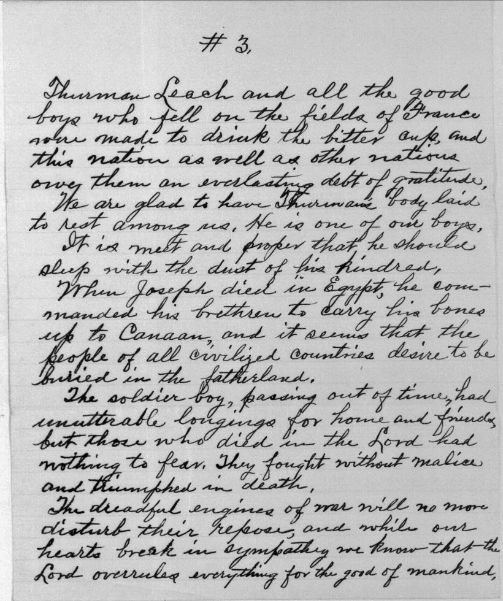 # 3.
Thurman Leach and all the good
boys who fell on the fields of France
were made to drink the bitter cup, and
this nation as well as other nations
owes them an everlasting debt of gratitude.
We are glad to have Thurman's body laid
to rest among us. He is one of our boys.
It is meet and proper that he should
sleep with the dust of his kindred.
When Joseph died in Egypt, he com-
manded his brethren to carry his bones
up to Canaan, and it seems that the
people of all civilized countries desire to be
buried in the fatherland.
The soldier boy, passing out of time, had
unutterable longings for home and friends,
but those who died in the Lord had
nothing to fear. They fought without malice
and triumphed in death.
The dreadful engines of war will no more
disturb their repose, and while our
hearts break in sympathy we know that the
Lord overrules everything for the good of mankind,